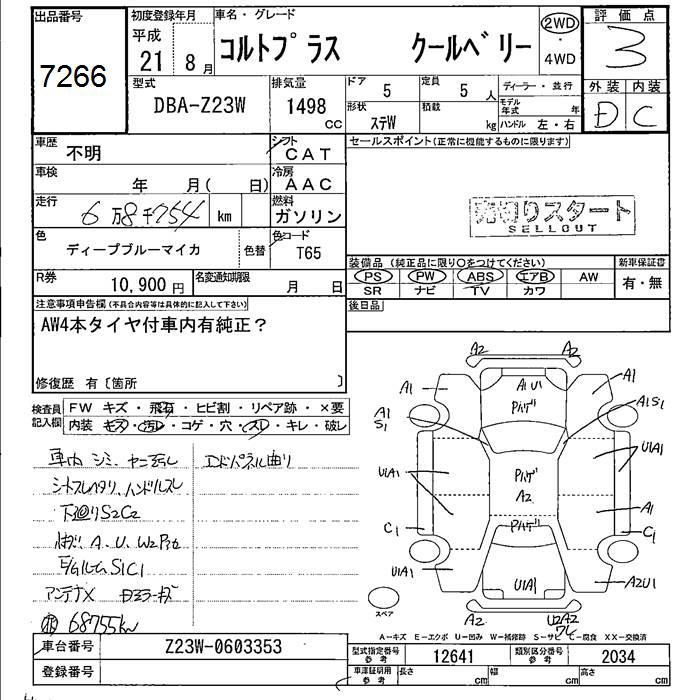 出品番号
7266
初度登録年月
平成 21 8月
車名・グレード
コルトプラス クールベリー
2WD・4WD
評価点
3
外装 内装
D C
型式
DBA-Z23W
排気量
1498 CC
ドア
5
定員
5 人
形状
ステW
積載
kg
ディーラー・並行
モデル年式 年
ハンドル 左・右
車歴
不明
シフト
CAT
車検
年 月( 日)
冷房
AAC
走行
6万8千754 km
燃料
ガソリン
色
ディープブルーマイカ
色替
色コード
T65
R券
10,900 円
名変通知期限
月 日
セールスポイント(正常に機能するものに限ります)
売切りスタート
SELLOUT
装備品(純正品に限り○をつけてください)
PS PW ABS エアB AW
SR ナビ TV カワ
新車保証書
有・無
後日品
注意事項申告欄(不具合内容等は具体的に記入して下さい)
AW4本タイヤ付車内有純正?
修復歴 有〔箇所 〕
検査員記入欄
FW キズ・飛石・ヒビ割・リペア跡・×要
内装 キズ・汚レ・コゲ・穴・スレ・キレ・破レ
車内シミ、ヤニ汚レ
シートスレ ヘタリ、ハンドルスレ
下廻りS2C2
A、U、W2
S1C1
アンテナX
68755km
コアパネル曲り
A2 A2
A1 A1U1 A1
A1 S1 A1S1
U1A1 U1A1
A2
A1
C1 C1
U1A1 U1A1 A2U1
A2 U2A2
スペア
A-キズ E-エクボ U-凹み W-補修跡 S-サビ C-腐食 XX-交換済
車台番号
Z23W-0603353
登録番号
型式指定番号 参考
12641
類別区分番号 参考
2034
車庫証明用 参考
長さ cm
幅 cm
高さ cm